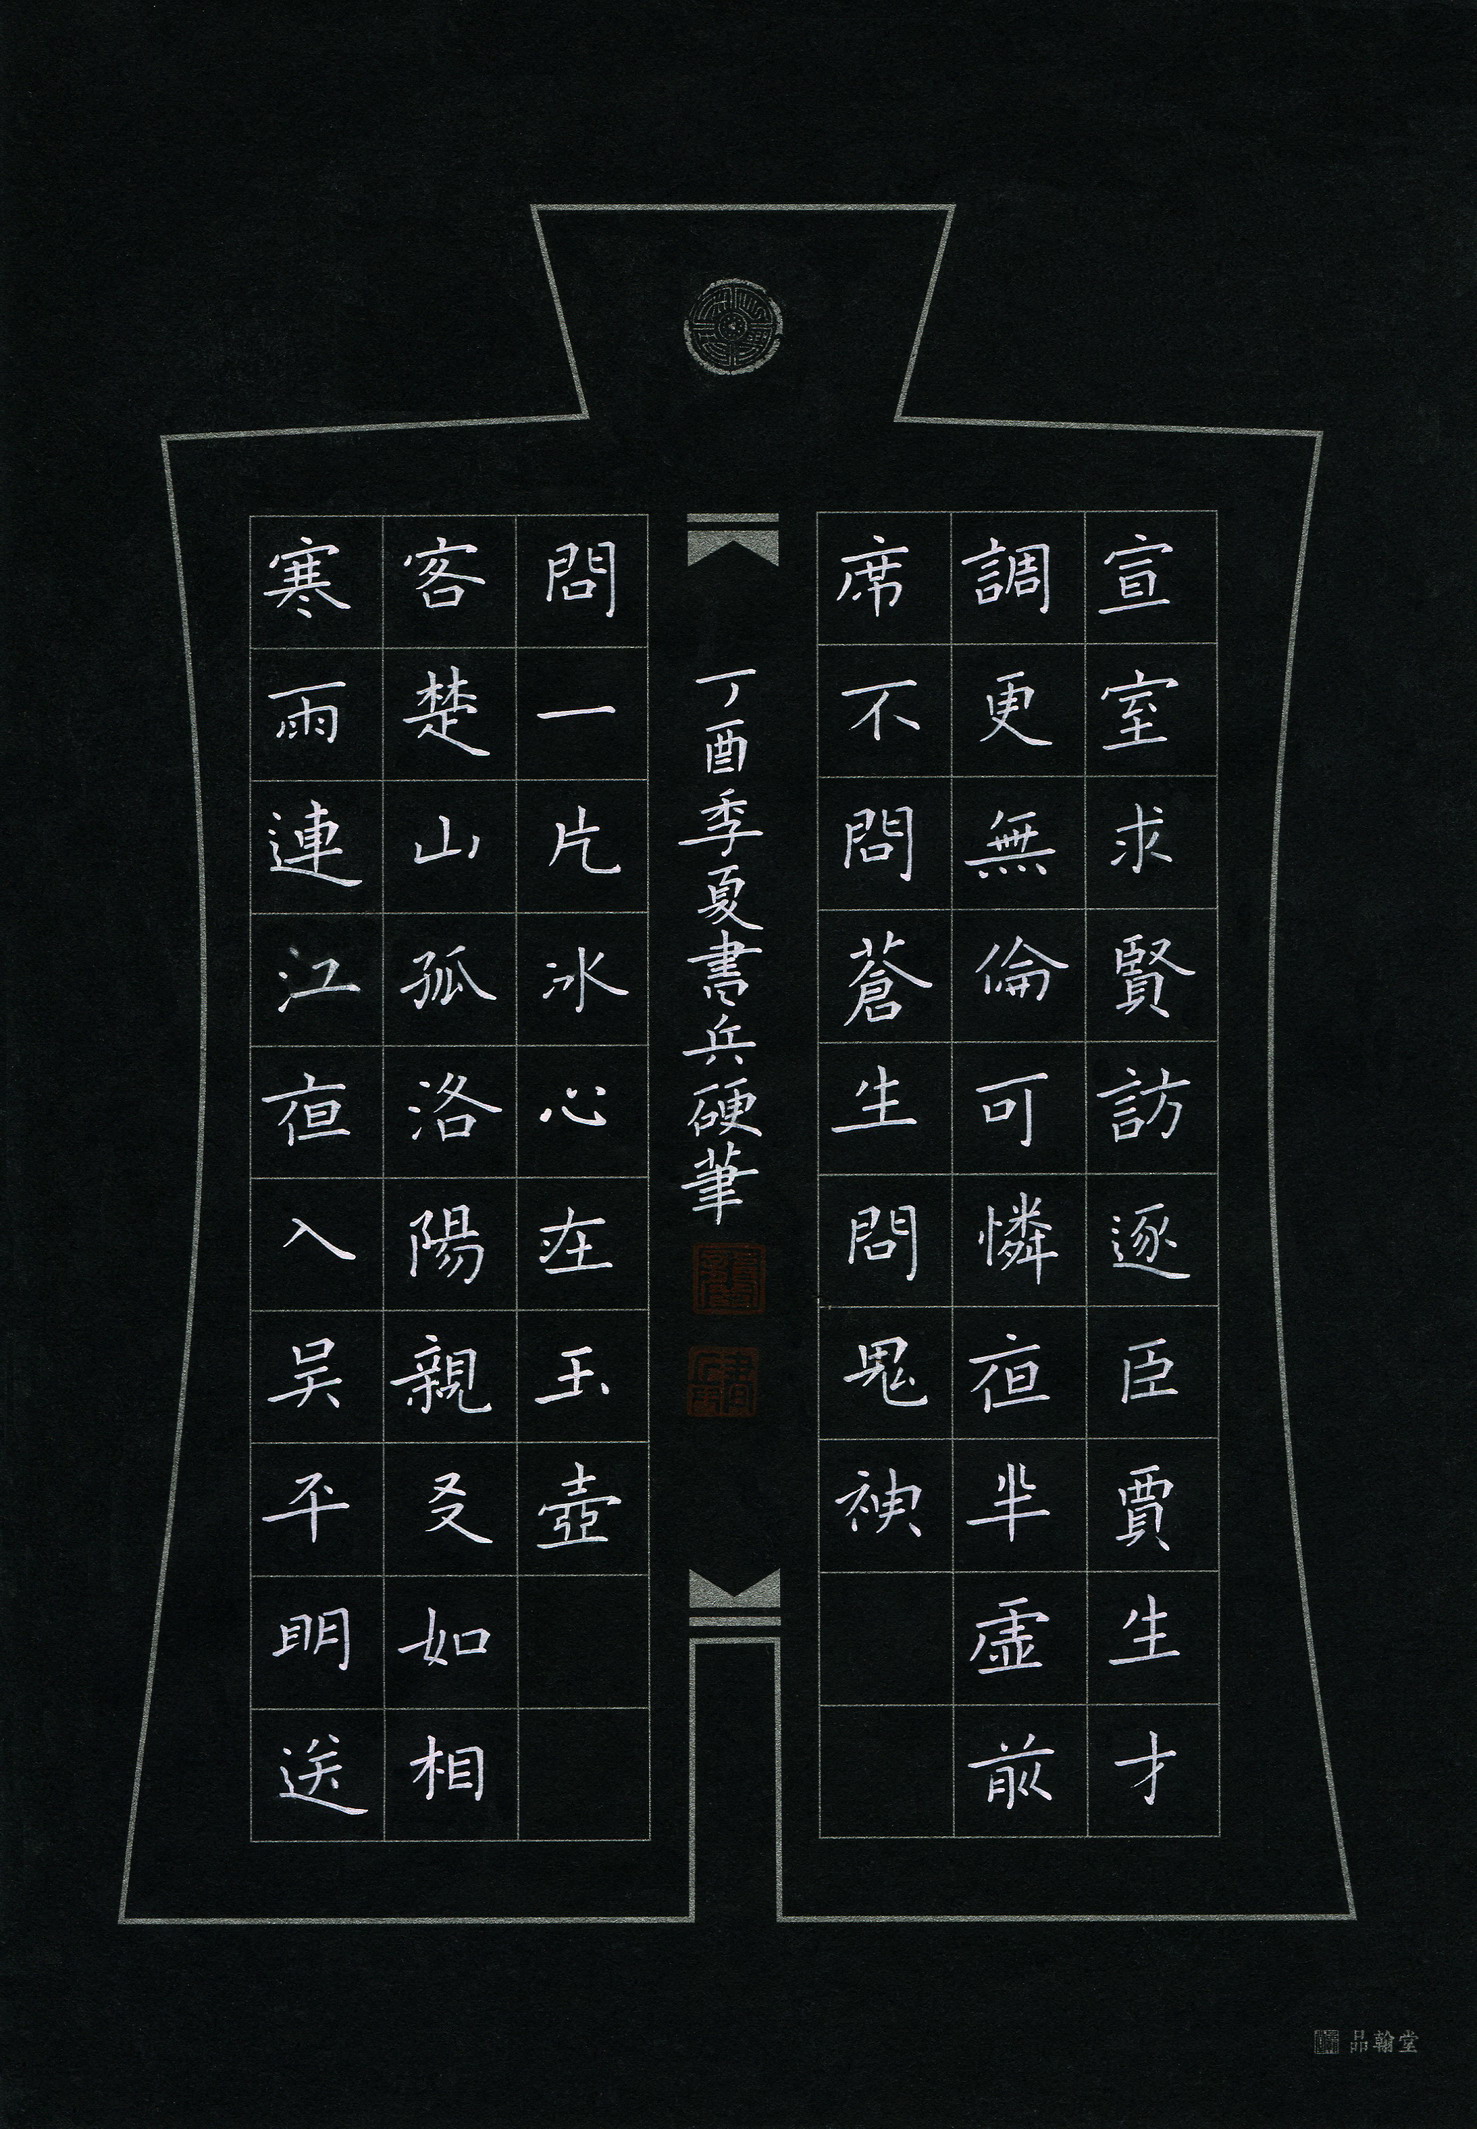 宣室求賢訪逐臣賈生才
調更無倫可憐夜半虛前
席不問蒼生問鬼神
寒雨連江夜入吳平明送
客楚山孤洛陽親友如相
問一片冰心在玉壺
丁酉季夏書兵硬筆
品翰堂